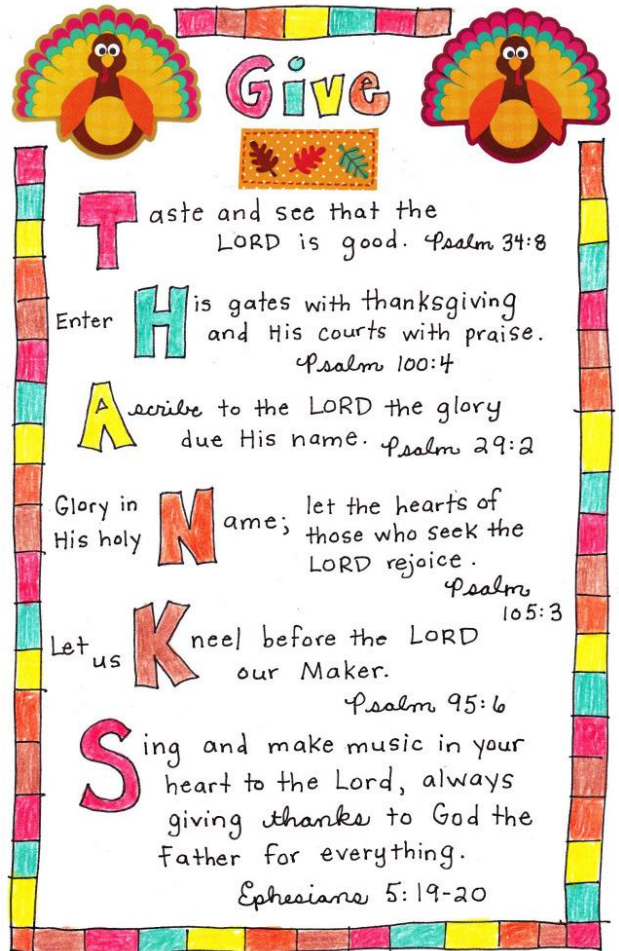 Give
Taste and see that the
LORD is good. Psalm 34:8
Enter His gates with thanksgiving
and His courts with praise.
Psalm 100:4
Ascribe to the LORD the glory
due His name. Psalm 29:2
Glory in His holy Name; let the hearts of
those who seek the
LORD rejoice.
Psalm
105:3
Let us Kneel before the LORD
our Maker.
Psalm 95:6
Sing and make music in your
heart to the Lord, always
giving thanks to God the
Father for everything.
Ephesians 5:19-20